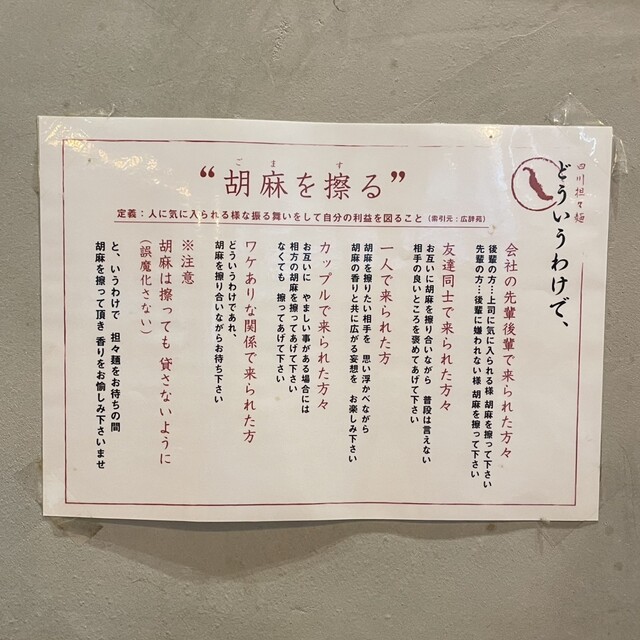 四川担々麺
どういうわけで、
ごます
“胡麻を擦る”
定義：人に気に入られる様な振る舞いをして自分の利益を図ること（索引元：広辞苑）
会社の先輩後輩で来られた方々
後輩の方…上司に気に入られる様 胡麻を擦って下さい
先輩の方…後輩に嫌われない様 胡麻を擦って下さい
友達同士で来られた方々
お互いに胡麻を擦り合いながら 普段は言えない
相手の良いところを褒めてあげて下さい
一人で来られた方
胡麻を擦りたい相手を 思い浮かべながら
胡麻の香りと共に広がる妄想を お楽しみ下さい
カップルで来られた方々
お互いに やましい事がある場合には
相方の胡麻を擦ってあげて下さい
なくても 擦ってあげて下さい
ワケありな関係で来られた方
どういうわけであれ、
胡麻を擦り合いながらお待ち下さい
※注意
胡麻は擦っても 貸さないように
（誤魔化さない）
と、いうわけで 担々麺をお待ちの間
胡麻を擦って頂き 香りをお愉しみ下さいませ